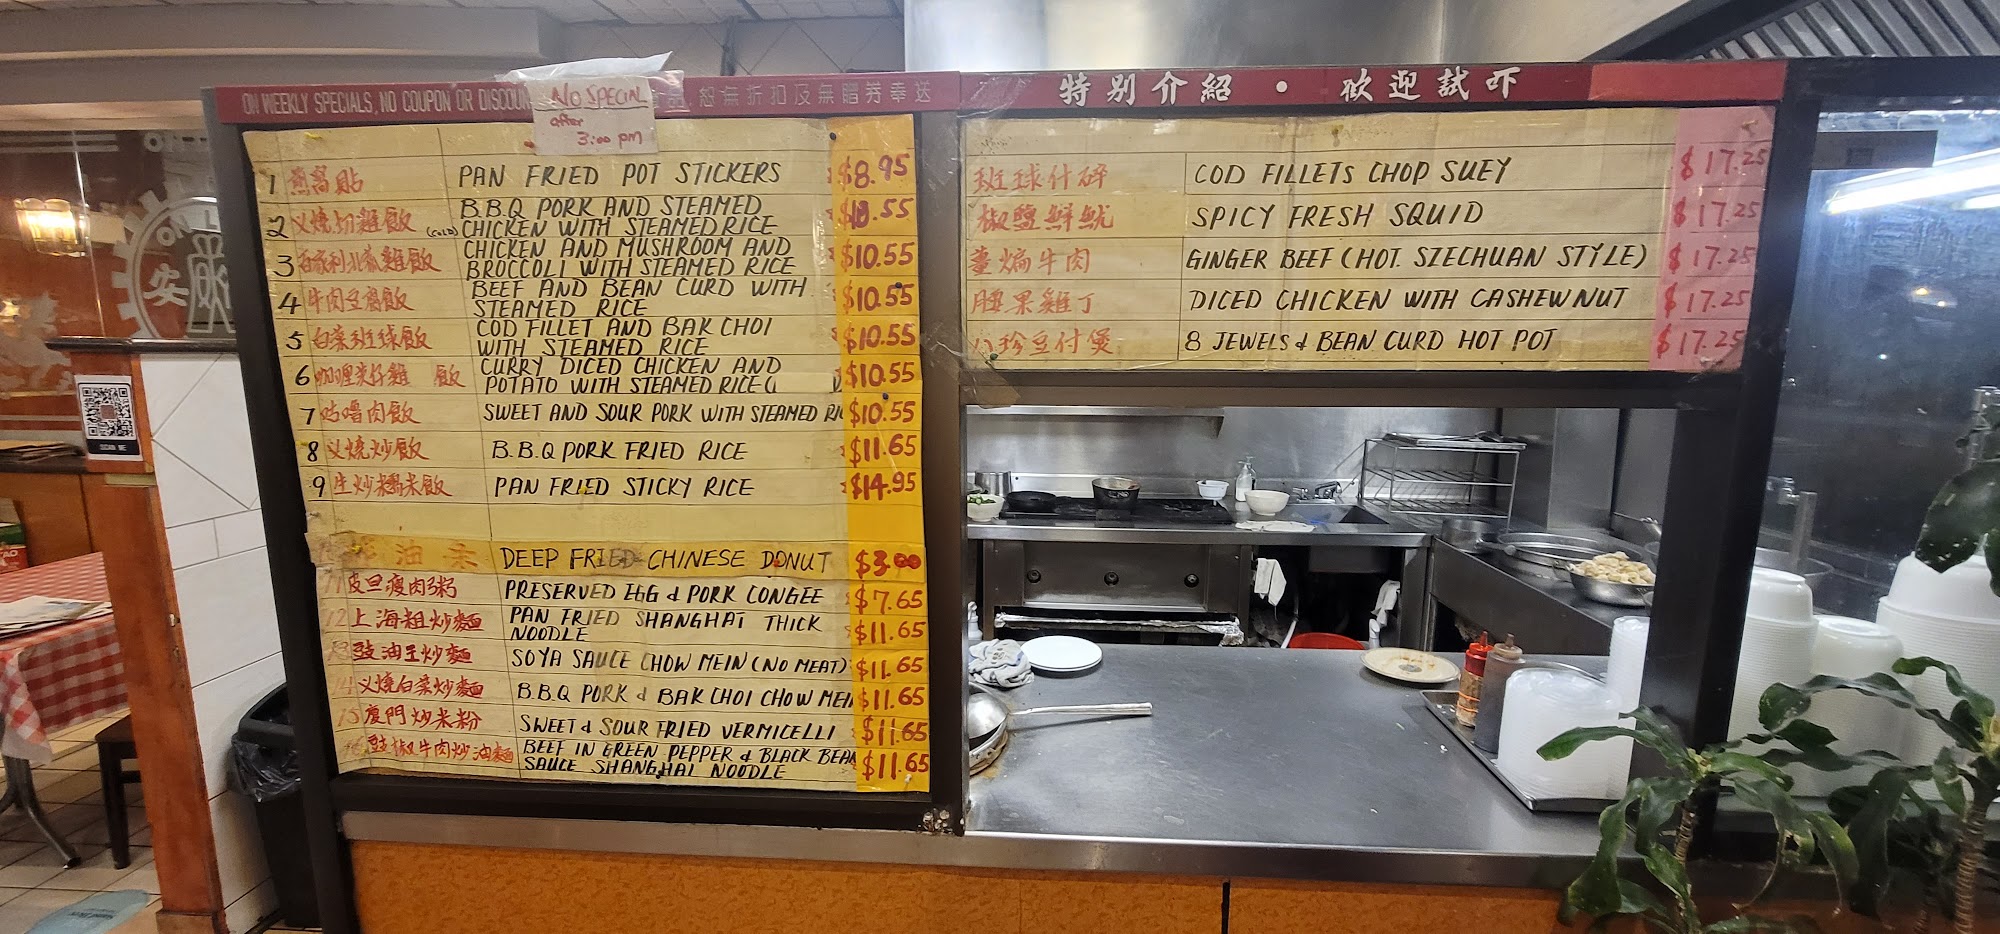 ON WEEKLY SPECIALS, NO COUPON OR DISCOUN
恕無折扣及無贈券奉送
NO SPECIAL
after
3:00 pm
1 煎窩貼 PAN FRIED POT STICKERS $8.95
2 叉燒切雞飯 (COLD) B.B.Q PORK AND STEAMED CHICKEN WITH STEAMED RICE $10.55
3 CHICKEN AND MUSHROOM AND BROCCOLI WITH STEAMED RICE $10.55
4 牛肉豆腐飯 BEEF AND BEAN CURD WITH STEAMED RICE $10.55
5 白菜班球飯 COD FILLET AND BAK CHOI WITH STEAMED RICE $10.55
6 咖喱茨仔雞飯 CURRY DICED CHICKEN AND POTATO WITH STEAMED RICE $10.55
7 咕嚕肉飯 SWEET AND SOUR PORK WITH STEAMED RI $10.55
8 叉燒炒飯 B.B.Q PORK FRIED RICE $11.65
9 生炒糯米飯 PAN FRIED STICKY RICE $14.95
油 DEEP FRIED CHINESE DONUT $3.00
11 皮旦瘦肉粥 PRESERVED EGG & PORK CONGEE $7.65
12 上海粗炒麵 PAN FRIED SHANGHAI THICK NOODLE $11.65
13 豉油王炒麵 SOYA SAUCE CHOW MEIN (NO MEAT) $11.65
14 叉燒白菜炒麵 B.B.Q PORK & BAK CHOI CHOW MEIN $11.65
15 廈門炒米粉 SWEET & SOUR FRIED VERMICELLI $11.65
16 豉椒牛肉炒油麵 BEEF IN GREEN PEPPER & BLACK BEAN SAUCE SHANGHAI NOODLE $11.65
特别介紹 · 欢迎試吓
班球什碎 COD FILLETS CHOP SUEY $17.25
椒鹽鮮魷 SPICY FRESH SQUID $17.25
薑焗牛肉 GINGER BEEF (HOT. SZECHUAN STYLE) $17.25
腰果雞丁 DICED CHICKEN WITH CASHEW NUT $17.25
八珍豆付煲 8 JEWELS & BEAN CURD HOT POT $17.25
SCAN ME
安